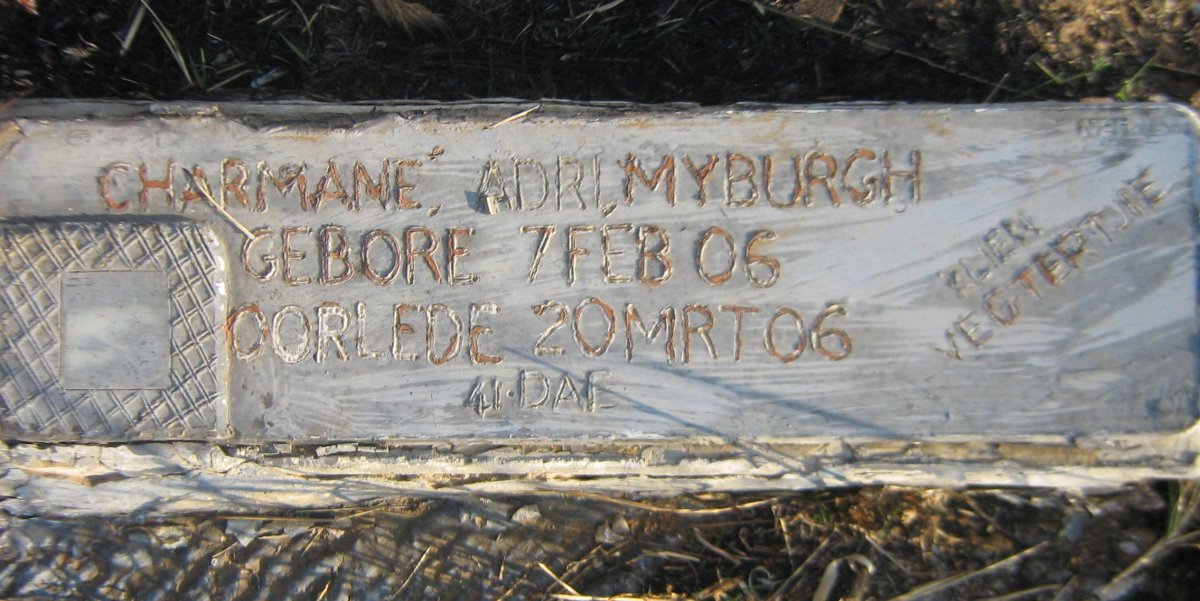 CHARMANÉ, ADRI, MYBURGH
GEBORE 7 FEB 06
OORLEDE 20 MRT 06
41. DAE
KLIEN
VEGTERTJIE